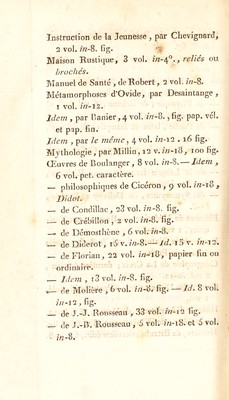 Instruction de la Jeunesse , par Chevignard,
2 vol. in-8. fig.
Maison Rustique, 3 vol. in-4°., reliés ou
brochés.
Manuel de Santé , de Robert, 2 vol. in-8.
Métamorphoses d'Ovide, par Desaintange ,
1 vol. in-12.
Idem , par Banier , 4 vol. in-8. , fig. pap. vél.
et pap. fin.
Idem , par le même , 4 vol. in-12 , 16 fig.
Mythologie , par Millin, 12 v. in-18 , 100 fig.
Œuvres de Boulanger , 8 vol. in-8. — Idem ,
6 vol. pet. caractère.
— philosophiques de Cicéron, 9 vol. in-18 ,
Didot.
— de Condillac , 23 vol. in-8.
— de Crébillon , 2 vol. in-8. fig.
— de Démosthène , 6 vol. in-8.
— de Diderot , 15 v. in-8. — Id. 15 v. in-12.
— de Florian, 22 vol. in-18 , papier fin ou
ordinaire.
— Idem , 13 vol. in-8. fig.
— de Molière , 6 vol. in-8. fig. — Id. 8 vol.
in-12 , fig.
— de J.-J. Rousseau , 33 vol. in-12 fig.
— de J.-B. Rousseau , 5 vol. in-18. et 5 vol.
in-8.